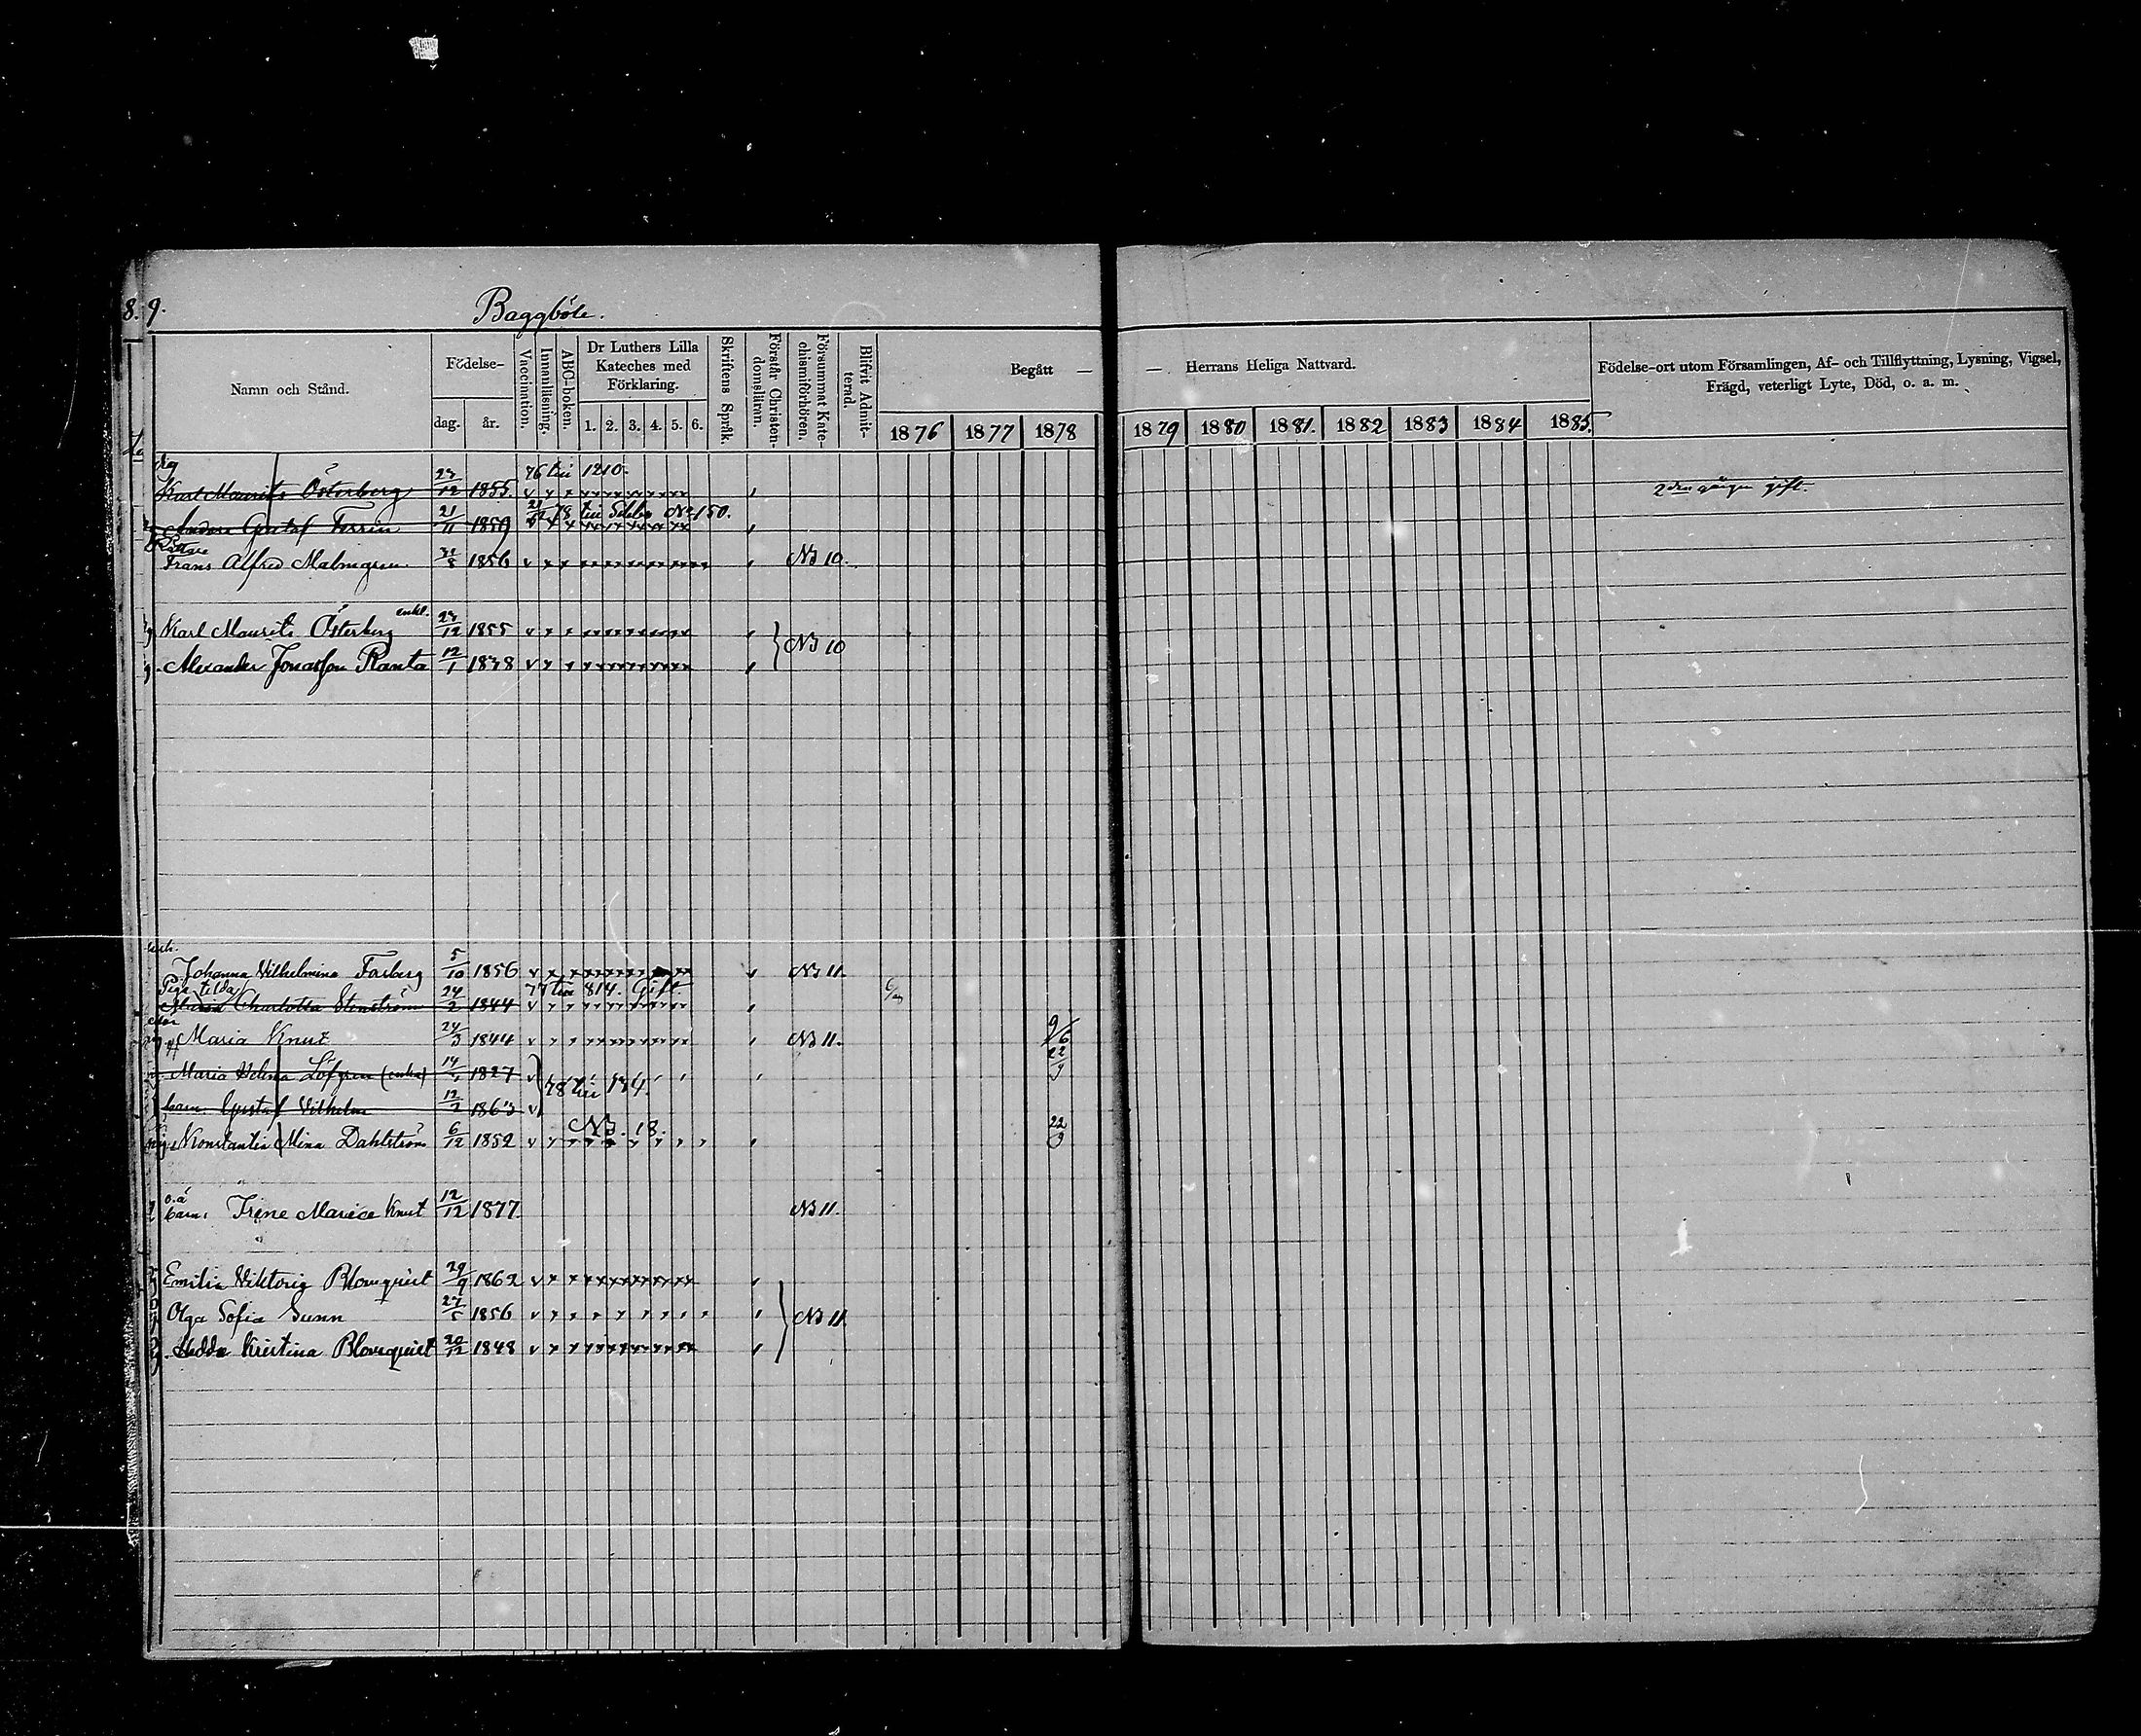 8. 9. Baggböle.
Namn och Stånd.
Födelse-
dag. år.
Vaccination.
Innanläsning.
ABC-boken.
Dr Luthers Lilla
Kateches med
Förklaring.
1. 2. 3. 4. 5. 6.
Skriftens Språk.
Förstår Christen-
domsläran.
Försummat Kate-
chismiförhören.
Blifvit Admit-
terad.
Begått —
— Herrans Heliga Nattvard.
1876 1877 1878 1879 1880 1881. 1882 1883 1884 1885.
Födelse-ort utom Församlingen, Af- och Tillflyttning, Lysning, Vigsel,
Frägd, veterligt Lyte, Död, o. a. m.
drg 76 till 1210.
Karl Maurits Österberg 23/12 1855. 2 den gången gift.
21/12 78 till Sibbo No 150.
Gustaf 21/11 1859
Frans Alfred Malmgren 1856 NB 10.
enkl.
Karl Maurits Österberg 23/12 1855 NB 10
Alexander Jonasson Ranta 12/1 1838
Johanna Vilhelmina Forsberg 5/10 1856 NB 11.
Piga tilda 77 till 814. Gift.
Maria Charlotta Stenström 24/2 1844
Maria Knut 24/3 1844 NB 11. 9/6
Maria Helena Löfgren (enka) 14/ 1827 78 till 134. 22/9
barn Gustaf Vilhelm 12/2 1863
NB. 18.
Konstantia Mina Dahlström 6/12 1852 22/9
o.ä
barn: Irene Maria Knut 12/12 1877. NB 11.
Emilia Viktoria Blomqvist 29/9 1862
Olga Sofia Sunn 27/5 1856 NB 11
Hedda Kristina Blomqvist 20/12 1848